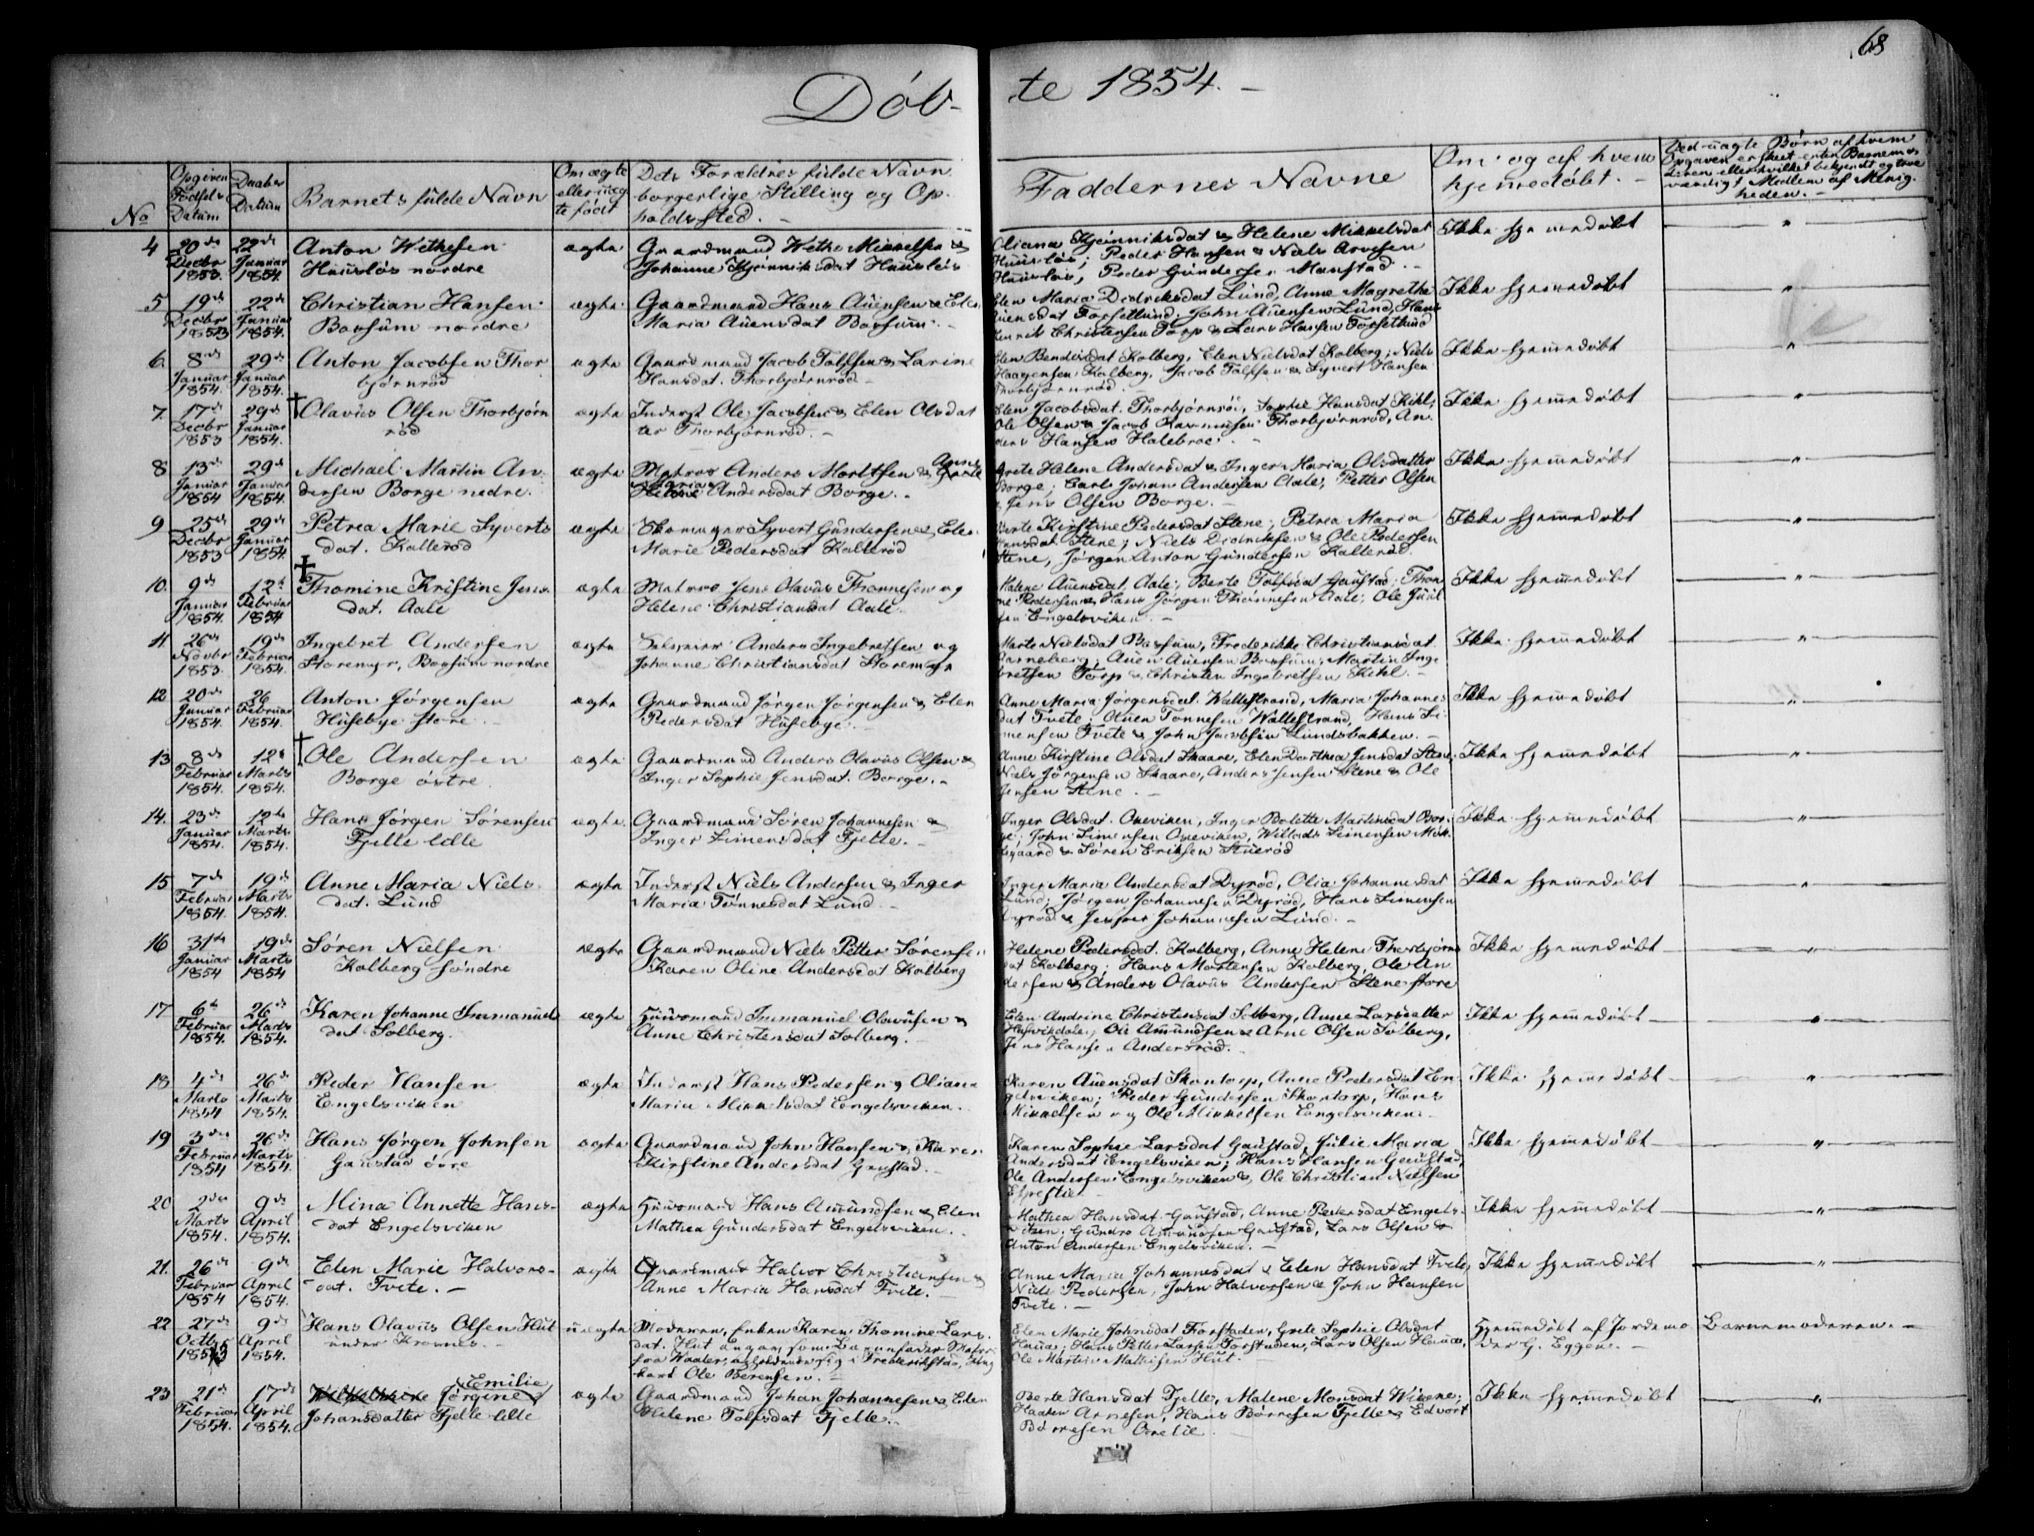 68
Döb-
te 1854. -
No
Opgiven Fødsels Datum
Daabs Datum
Barnets fulde Navn
Om ægte eller uægte født
Dets Forældres fulde Navn
borgerlige Stilling og Op-
holdssted. -
Faddernes Navne
Om og af hvem
hjemedøbt. -
Ved uægte Børn af hvem
Opgaven er skeet enten Barnemo-
deren eller hvilket bekjendt og tro-
værdigt Medlem af Menig-
heden. -
4 20de Decbr 1853. 22de Januar 1854.
Anton Wethesen
Huusløs nordre
ægte
Gaardmand Wethe Mikkelsen &
Johanne Kjønniksdat Huusløs
Oliana Kjønniksdat & Helene Mikkelsdat
Huusløs; Peder Hansen & Niels Arvesen
Huusløs, Peder Gundersen Manstad. -
Ikke hjemedøbt
"
5 19de Decbr 1853 22de Januar 1854.
Christian Hansen
Bossum nordre
ægte
Gaardmand Hans Auensen & Elen
Maria Auensdat Bossum. -
Elen Maria Didriksdat Lund, Anne Magrethe
Auensdat Forsetlund; John Auensen Lund, Hans
Henrik Christensen Torp & Lars Hansen Forsetlund
Ikke hjemedøbt
"
6. 8de Januar 1854. 29de Januar 1854.
Anton Jacobsen Thor
bjørnrød
ægte
Gaardmand Jacob Tolfsen & Larine
Hansdat. Thorbjørnrød -
Elen Bendixdat Kolberg, Elen Nielsdat Kolberg; Niels
Haagensen Kolberg, Jacob Tolfsen & Syvert Hansen
Thorbjørnrød. -
Ikke hjemmedøbt
"
7. 17de Decbr 1853 29de Januar 1854.
† Olavus Olsen Thorbjørn
rød
ægte
Inderst Ole Jacobsen & Elen Olsdat
ter Thorbjørnrød. -
Elen Jacobsdat. Thorbjørnrød, Sophie Hansdat Kihl,
Ole Olsen & Jacob Rasmussen Thorbjørnrød, An-
ders Hansen Halebroe. -
Ikke hjemedøbt
"
8 13de Januar 1854 29de Januar 1854.
Michael Martin An-
dersen Borge nedre.
ægte
Matros Anders Mortsen & Anne Grete
Maria
Helene Andersdat Borge. -
Grete Helene Andersdat & Inger Maria Olsdatter
Borge; Carl Johan Andersen Aale, Petter Olsen
& Jens Olsen Borge. -
Ikke hjemedøbt
"
9 25de Decbr 1853 29de Januar 1854.
Petrea Marie Syverts
dat. Kallerød
ægte
Skomager Syvert Gundersen & Elen
Marie Pedersdat Kallerød
Berte Kirstine Pedersdat Stene, Petrea Maria
Hansdat Stene; Niels Didriksen & Ole Pedersen
Stene, Jørgen Anton Gundersen Kallerød.
Ikke hjemmedøbt
"
10. 9de Januar 1854. 12te Februar 1854
† Thomine Kristine Jens
dat. Aale
ægte
Matros Jens Olavus Thonnesen og
Helene Christiansdat Aale. -
Helene Auensdat. Aale, Berte Tolfsdat Gaustad; Thon
ne Pedersen & Hans Jørgen Thønnesen Aale; Ole Juul
sen Engelsviken. -
Ikke hjemmedøbt
"
11 26de Novbr 1853. 19de Februar 1854.
Ingebret Andersen
Storemyr, Bossum nordre
ægte
Selveier Anders Ingebretsen og
Johanne Christiansdat Storemyr
Marte Nielsdat Bossum, Frederikke Christiansdat
Auen Auensen Bossum, Martin Inge
bretsen Torp & Christen Ingebretsen Kihl. -
Ikke hjemmedøbt
"
12 20de Januar 1854. 26 Februar 1854.
Anton Jørgensen
Husebye store. -
ægte
Gaardmand Jørgen Jørgensen & Elen
Pedersdat Husebye. -
Anne Maria Jørgensdat. Wallestrand, Maria Johannes
dat Tvete, Auen Tonnesen Wallestrand, Hans Si-
mensen Tvete & John Jacobsen Lundsbakken. -
Ikke hjemmedøbt
"
13 8de Februar 1854. 12te Marts 1854.
† Ole Andersen
Borge østre
ægte
Gaardmand Anders Olavus Olsen &
Inger Sophie Jensdat. Borge. -
Anne Kirstine Olsdat Skaare, Elen Dorthea Jensdat Stene,
Niels Jørgensen Skaare, Anders Jensen Stene & Ole
Jensen Stene. -
Ikke hjemmedøbt
"
14. 23de Januar 1854. 12te Marts 1854.
Hans Jørgen Sørensen
Fjelle lille
ægte.
Gaardmand Søren Johannesen &
Inger Simensdat Fjelle. -
Inger Olsdat. Oxeviken, Inger Bolette Martinsdat Bor-
ge; John Simensen Oxeviken, Willads Simensen Mok
legaard & Søren Eriksen Stuerød
Ikke hjemmedøbt
"
15 7de Februar 1854. 19de Marts 1854.
Anne Maria Niels-
dat. Lund
ægte
Inderst Niels Andersen & Inger
Maria Tonnesdat Lund. -
Inger Maria Andersdat Dyrød, Olia Johannesdat
Lund; Jørgen Johannesen Dyrød, Hans Simensen
Dyrød & Jesper Johannesen Lund. -
Ikke hjemmedøbt
"
16 31te Januar 1854 19de Marts 1854
Søren Nielsen
Kolberg søndre
ægte
Gaardmand Niels Petter Sørensen
Karen Oline Andersdat Kolberg
Helene Pedersdat. Kolberg, Anne Helene Thorbjørns
dat Kolberg; Hans Mortensen Kolberg, Ole An
dersen & Anders Olavus Andersen Stene store
Ikke hjemmedøbt
"
17 6te Februar 1854. 26de Marts 1854.
Karen Johanne Immanuels
dat Solberg.
ægte
Huusmand Immanuel Olavusen &
Anne Christensdat Solberg. -
Elen Andrine Christensdat Solberg, Anne Larsdatter
Ole Amundsen & Arne Olsen Solberg,
Jens Hansen Andersrød. -
Ikke hjemmedøbt
"
18 4de Marts 1854 26de Marts 1854.
Peder Hansen
Engelsviken
ægte
Inderst Hans Pedersen og Oliana
Maria Mikkelsdat Engelsviken.
Karen Auensdat Skontorp, Anne Pedersdat En-
gelsviken; Peder Gundersen Skontorp, Hans
Mikkelsen og Ole Mikkelsen Engelsviken. -
Ikke hjemmedøbt
"
19 3die Februar 1854 26de Marts 1854.
Hans Jørgen Johnsen
Gaustad øvre
ægte
Gaardmand John Hansen & Karen
Kirstine Andersdat Gaustad. -
Karen Sophie Larsdat Gaustad, Julie Maria
Andersdat Engelsviken; Hans Hansen Gaustad,
Ole Andersen Engelsviken & Ole Christian Nielsen
Ikke hjemmedøbt
"
20 2den Marts 1854. 9de April 1854.
Mina Annette Hans-
dat Engelsviken
ægte
Huusmand Hans Amundsen & Elen
Mathea Gundersdat Engelsviken. -
Mathea Hansdat Gaustad, Anne Pedersdat Engels-
viken; Gunder Amundsen Gaustad, Lars Olsen &
Anton Andersen Engelsviken. -
Ikke hjemmedøbt
"
21. 26de Februar 1854 9de April 1854.
Elen Marie Halvors-
dat. Tvete. -
ægte
Gaardmand Halvor Christiansen &
Anne Maria Hansdat Tvete. -
Anne Maria Johannesdat & Elen Hansdat Tvete,
Niels Pedersen, John Halvorsen & John Hansen
Tvete. -
Ikke hjemmedøbt
"
22 27de Octbr 1853 9de April 1854.
Hans Olavus Olsen Hut
under Kroenes. -
uægte
Moderen, Enken Karen Thomine Lars-
dat. Hut angav som Barnefader Matros
fra Waaler, opholdende sig i Frederikstad, Ung
karl Ole Berensen. -
Elen Marie Johnsdat Torstaden, Grete Sophie Olsdat
Hauae; Hans Petter Larsen Torstaden, Lars Olsen Hauae,
Ole Martin Mathisen Hut. -
Hjemmedøbt af Jordemo
der G. Eggen. -
Barnemoderen. -
23 21de Februar 1854. 17de April 1854.
Emilie
Jørgine
Johansdatter Fjelle lille
ægte
Gaardmand Johan Johannesen & Elen
Helene Tolfsdat Fjelle. -
Berte Hansdat Fjelle, Malene Monsdat Wivene;
Haagen Arnesen, Hans Børresen Fjelle & Edvart
Børresen Ørelie.
Ikke hjemmedøbt
"